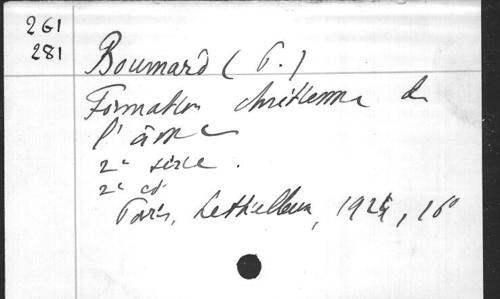 261
281
Boumard (P.)
Formation chrétienne de
l'âme
2e série.
2e éd
Paris, Lethielleux, 1924, 16°